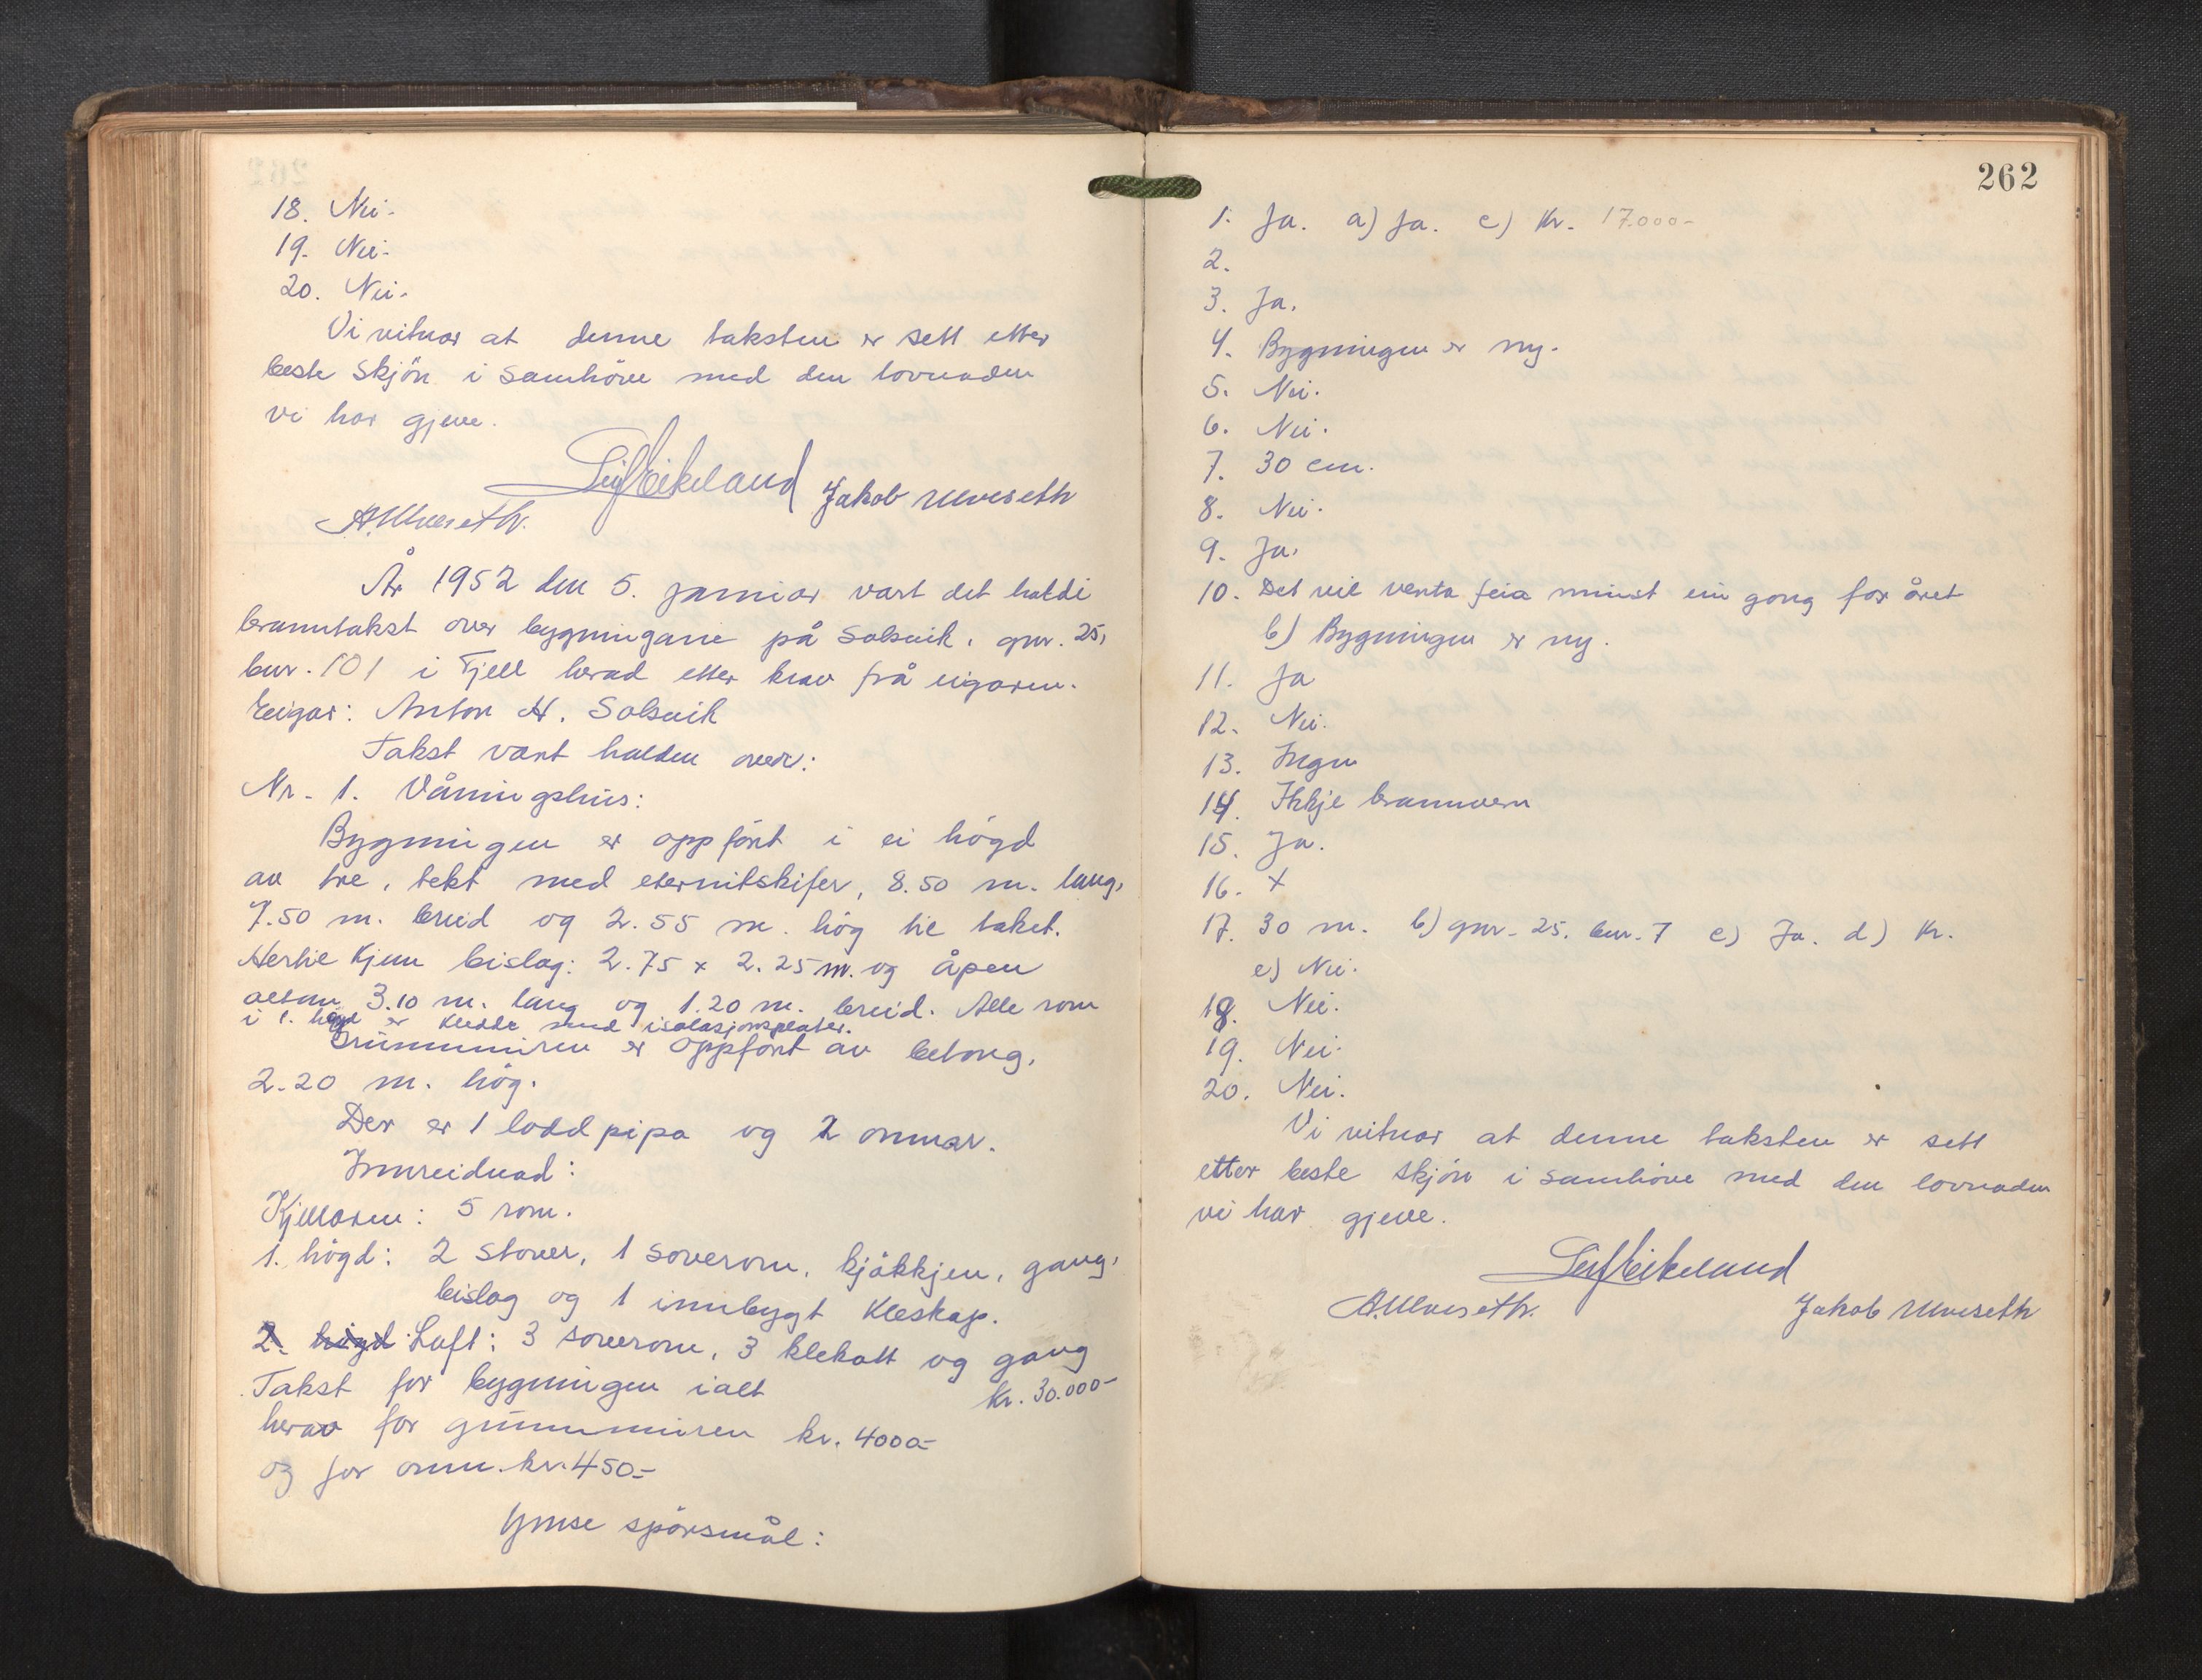 18. Nei.
19. Nei.
20. Nei.
Vi vitnar at denne taksten er sett etter
beste skjön i samhöve med den lovnaden
vi har gjeve.
Leif Eikeland Jakob Ulveseth
A. Ulveseth.
År 1952 den 5. januar vart det haldi
branntakst over bygningane på Solsvik, gnr. 25,
bnr. 101 i Fjell herad etter krav frå eigaren.
Eigar: Anton H. Solsvik
Takst vart halden over:
Nr. 1. Våningshus:
Bygningen er oppfört i ei högd
av tre, tekt med eternitskifer, 8.50 m. lang,
7.50 m. breid og 2.55 m. hög til taket.
Hertil kjem bislag: 2.75 x 2.25 m. og åpen
altan 3.10 m. lang og 1.20 m. breid. Alle rom
i 1. högd er kledde med isolasjonsplater.
Grunnmuren er oppfört av betong,
2.20 m. hög.
Der er 1 lodd pipa og 2 omnar.
Innreidnad:
Kjellaren: 5 rom.
1. högd: 2 stover, 1 soverom, kjökkjen, gang,
bislag og 1 innbygt kleskap.
2. högd Loft: 3 soverom, 3 klekott og gang
Takst for bygningen ialt kr. 30.000-
herav for grunnmuren kr. 4000-
og for omn. kr. 450-
Ymse spörsmål:
262
1. Ja. a) Ja. c) Kr. 17.000-
2.
3. Ja.
4. Bygningen er ny.
5. Nei.
6. Nei.
7. 30 cm.
8. Nei.
9. Ja.
10. Det vil venta feia minst ein gong for året
b) Bygningen er ny.
11. Ja
12. Nei.
13. Ingen
14. Ikkje brannvern
15. Ja.
16. x
17. 30 m. b) gnr. 25. bnr. 7 c) Ja. d) Kr.
e) Nei.
18. Nei.
19. Nei.
20. Nei.
Vi vitnar at denne taksten er sett
etter beste skjön i samhöve med den lovnaden
vi har gjeve.
Leif Eikeland
A. Ulveseth. Jakob Ulveseth